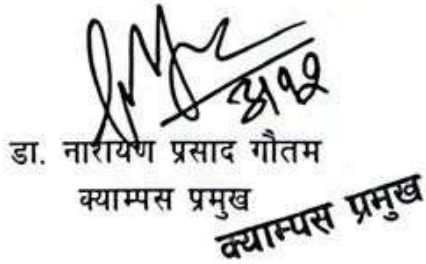 डा. नारायण प्रसाद गौतम
क्याम्पस प्रमुख
क्याम्पस प्रमुख